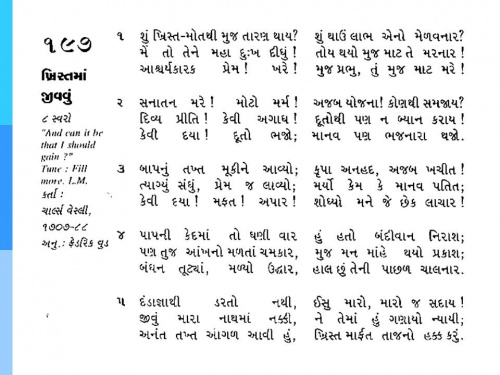 ૧૯૭
ખ્રિસ્તમાં
જીવવું
૮ સ્વરો
"And can it be
that I should
gain ?"
Tune : Fill
more. L.M.
કર્તા :
ચાર્લ્સ વેસ્લી,
૧૭૦૭-૮૮
અનુ. : ફ્રેડરિક વુડ
૧ શું ખ્રિસ્ત-મોતથી મુજ તારણ થાય? શું થાઉં લાભ એનો મેળવનાર?
મેં તો તેને મહા દુઃખ દીધું! તોય થયો મુજ માટ તે મરનાર!
આશ્ચર્યકારક પ્રેમ! ખરે! મુજ પ્રભુ, તું મુજ માટ મરે!
૨ સનાતન મરે! મોટો મર્મ! અજબ યોજના! કોણથી સમજાય?
દિવ્ય પ્રીતિ! કેવી અગાધ! દૂતોથી પણ ન બ્યાન કરાય!
કેવી દયા! દૂતો ભજો; માનવ પણ ભજનારા થજો.
૩ બાપનું તખ્ત મૂકીને આવ્યો; કૃપા અનહદ, અજબ ખચીત!
ત્યાગ્યું સંધું, પ્રેમ જ લાવ્યો; મર્યો કેમ કે માનવ પતિત;
કેવી દયા! મફત! અપાર! શોધ્યો મને જે છેક લાચાર!
૪ પાપની કેદમાં તો ઘણી વાર હું હતો બંદીવાન નિરાશ;
પણ તુજ આંખનો મળતાં ચમકાર, મુજ મન માંહે થયો પ્રકાશ;
બંધન તૂટ્યાં, મળ્યો ઉદ્ધાર, હાલ છું તેની પાછળ ચાલનાર.
૫ દંડાજ્ઞાથી ડરતો નથી, ઈસુ મારો, મારો જ સદાય!
જીવું મારા નાથમાં નક્કી, ને તેમાં હું ગણાયો ન્યાયી;
અનંત તખ્ત આગળ આવી હું, ખ્રિસ્ત મારફત તાજનો હક્ક કરું.